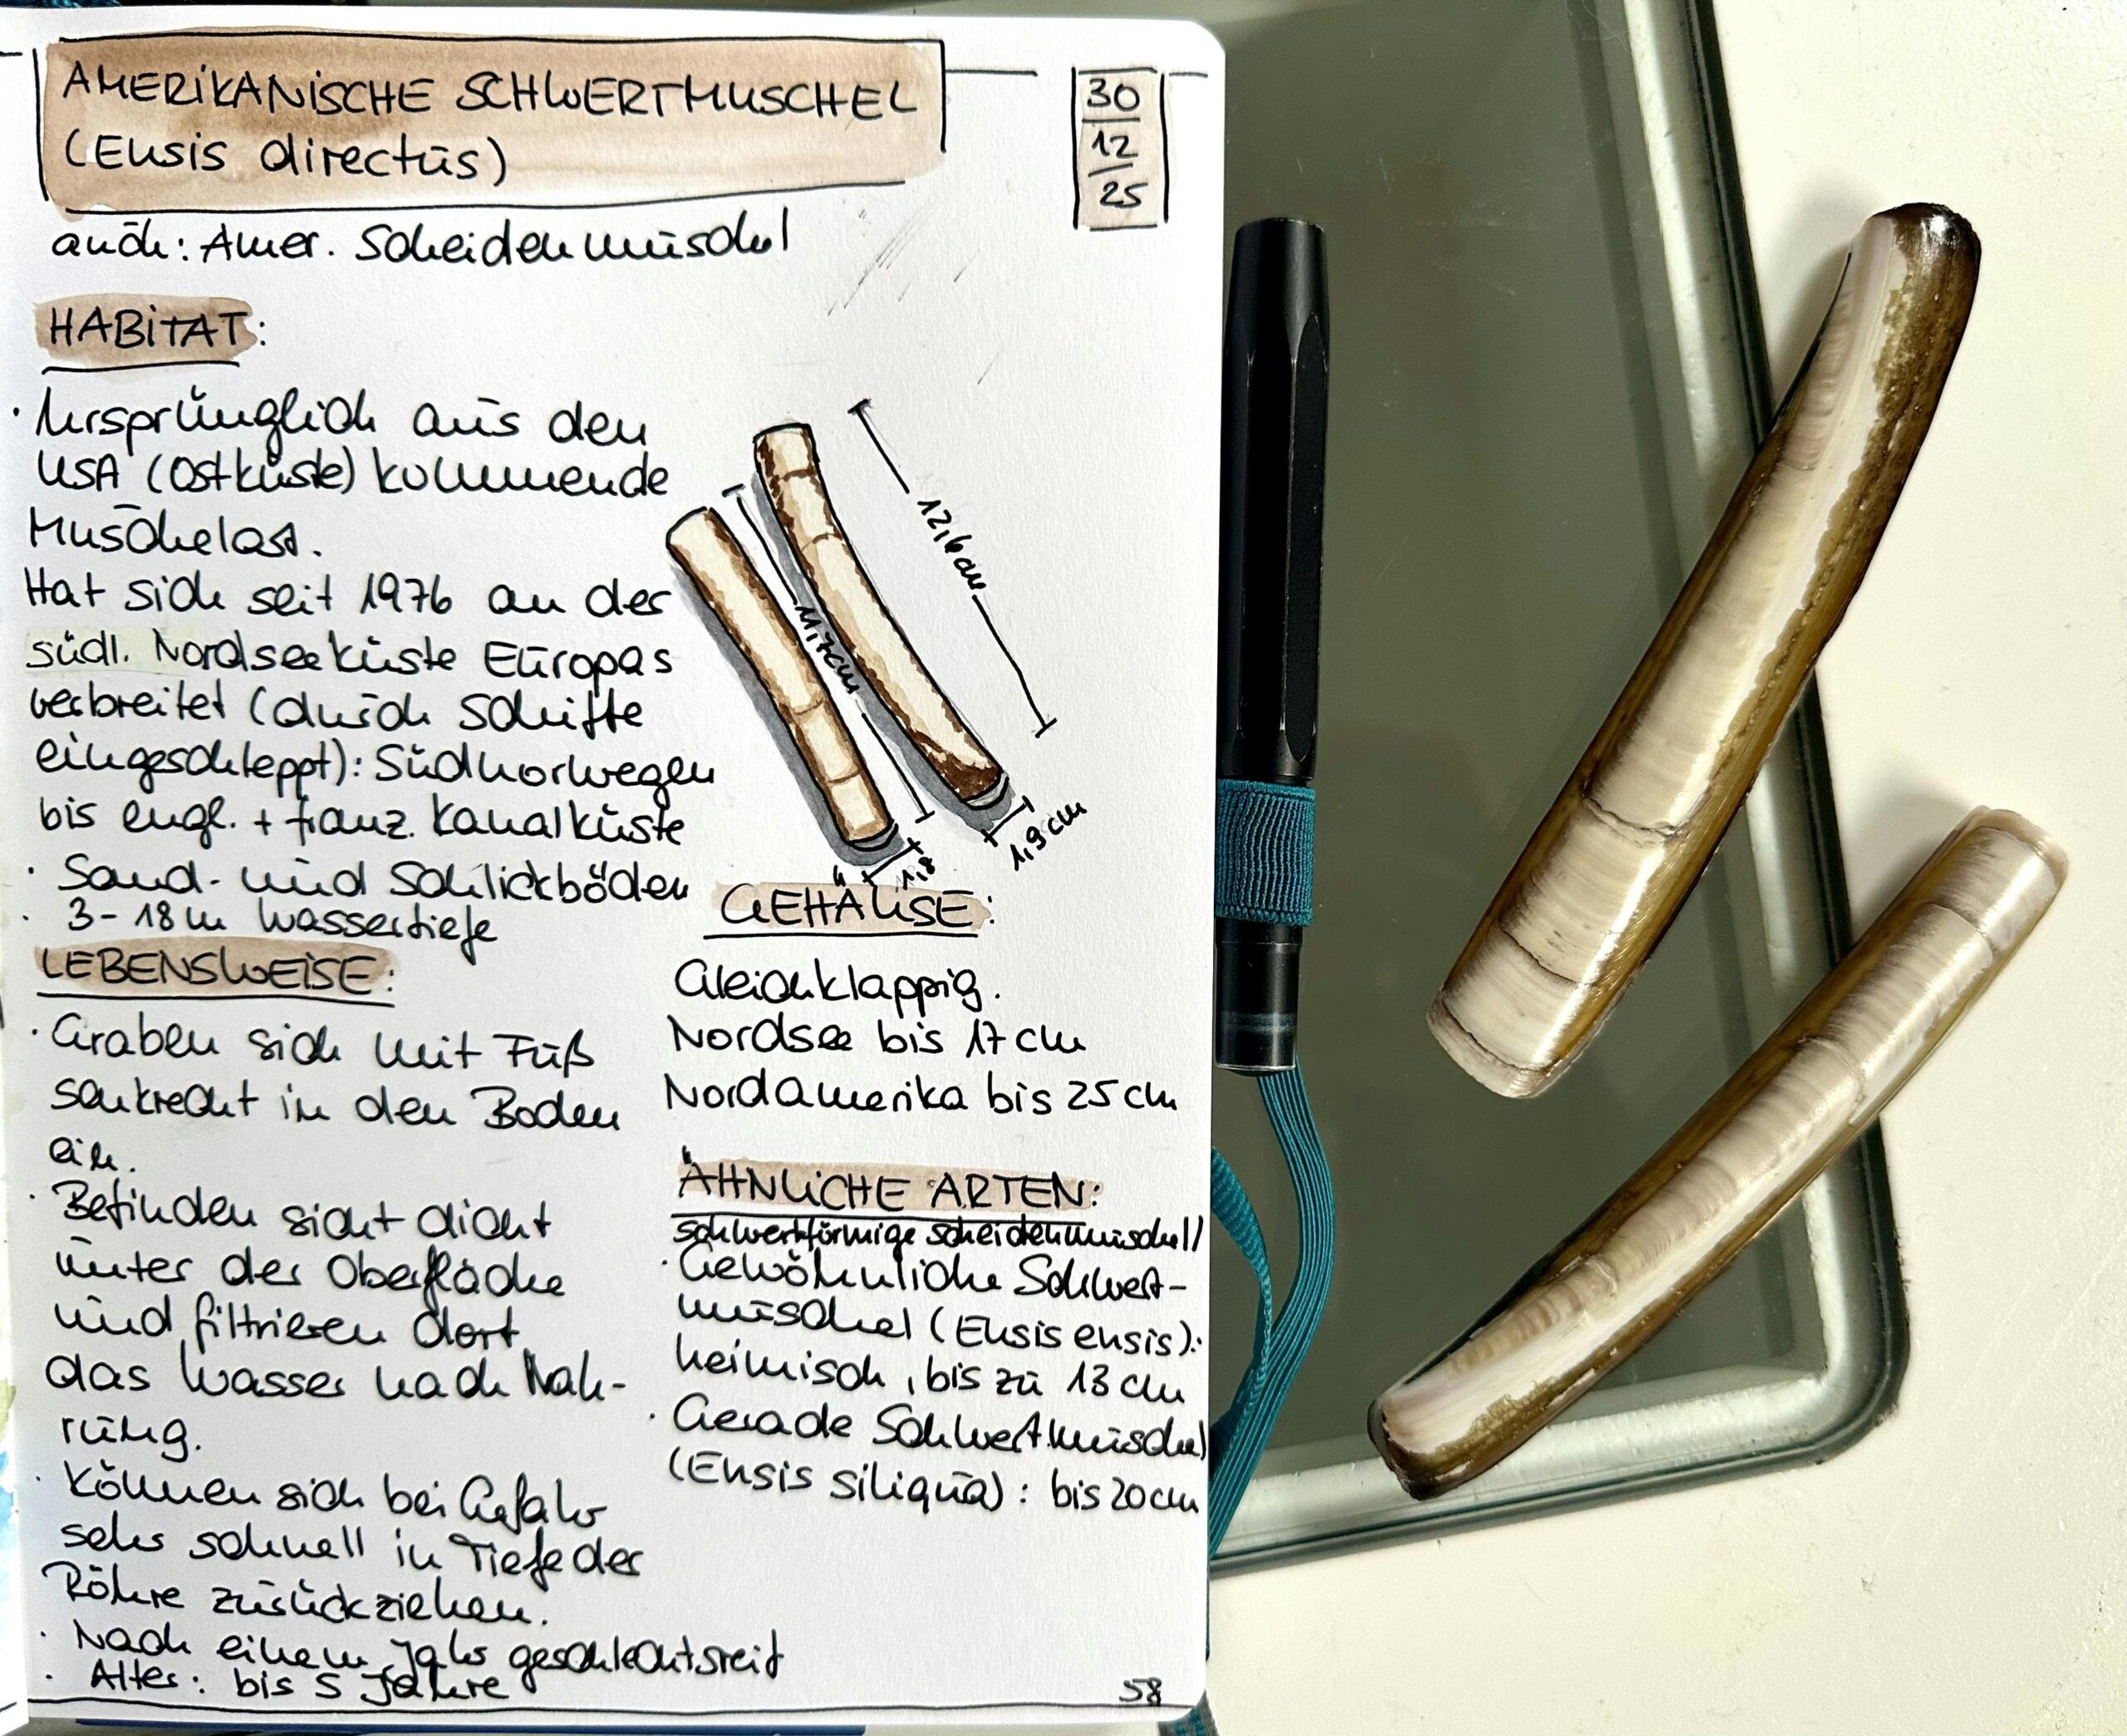 AMERIKANISCHE SCHWERTMUSCHEL
(Ensis directus)
30
12
25
auch: Amer. Scheidenmuschel
HABITAT:
· Ursprünglich aus den
USA (Ostküste) kommende
Muschelart.
Hat sich seit 1976 an der
südl. Nordseeküste Europas
verbreitet (durch Schiffe
eingeschleppt): Südnorwegen
bis engl. + franz. Kanalküste
· Sand- und Schlickböden
· 3-18m Wassertiefe
LEBENSWEISE:
· Graben sich mit Fuß
senkrecht in den Boden
ein.
· Befinden sicht dicht
unter der Oberfläche
und filtrieren dort
das Wasser nach Nah-
rung.
· Können sich bei Gefahr
sehr schnell in Tiefe der
Röhre zurückziehen.
· Nach einem Jahr geschlechtsreif
· Alter: bis 5 Jahre
12,6cm
11,7cm
1,9cm
1,8
GEHÄUSE:
Gleichklappig.
Nordsee bis 17cm
Nordamerika bis 25cm
ÄHNLICHE ARTEN:
schwertförmige Scheidenmuschel/
· Gewöhnliche Schwert-
muschel (Ensis ensis):
heimisch, bis zu 13cm
· Gerade Schwertmuschel
(Ensis siliqua): bis 20cm
58